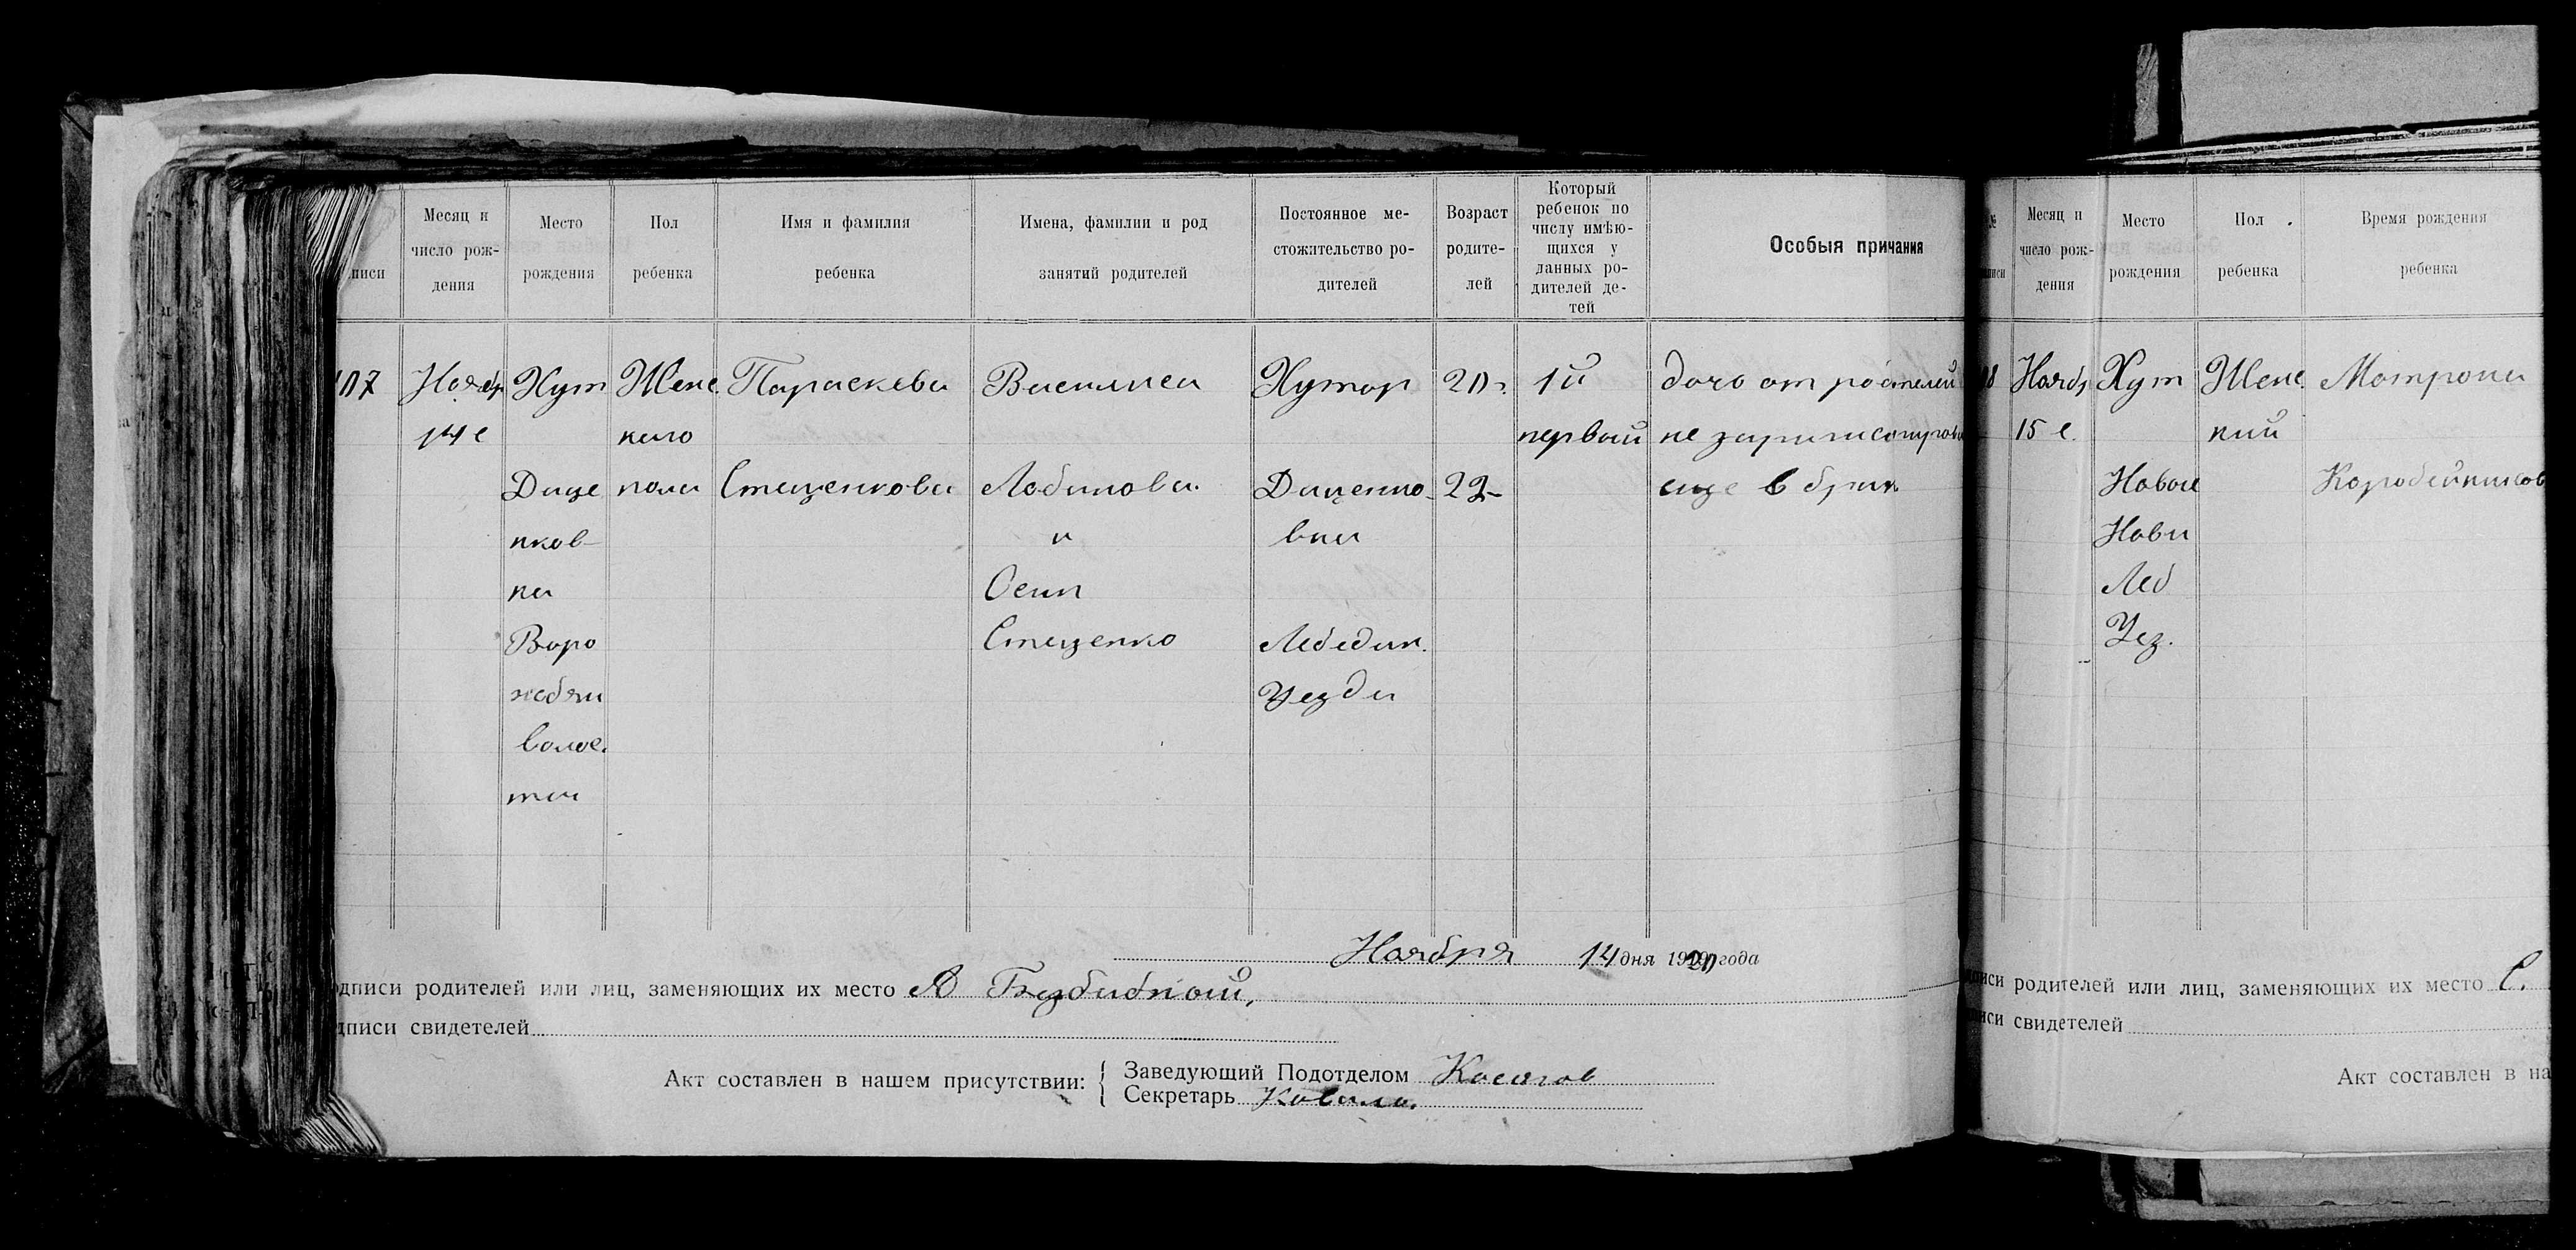 писи
Месяц и
число рож-
дения
Место
рождения
Пол
ребенка
Имя и фамилия
ребенка
Имена, фамилии и род
занятий родителей
Постоянное ме-
стожительство ро-
дителей
Возраст
родите-
лей
Который
ребенок по
числу имѣю-
щихся у
данных ро-
дителей де-
тей
Особыя причания
107
Ноябр
14 е
Хут
Даце
нков-
ка
Воро
жбян
волос.
ти
Женс
каго
пола
Параскева
Стеценкова
Василиса
Лобанова
и
Осип
Стеценко
Хутор
Даценко-
вка
Лебедин.
Уезда
20
22
1й
первый
дочь от родителей
не
еще в брак
Ноября 14 дня 1920 года
дписи родителей или лиц, заменяющих их место
дписи свидетелей
Акт составлен в нашем присутствии:
Заведующий Подотделом
Секретарь
№
писи
Месяц и
число рож-
дения
Место
рождения
Пол
ребенка
Время рождения
ребенка
8
Ноябр
15 е.
Хут
Новое
Нови
Леб
Уез.
Женс
кий
Матрона
Коробейников
писи родителей или лиц, заменяющих их место С.
иси свидетелей
Акт составлен в на